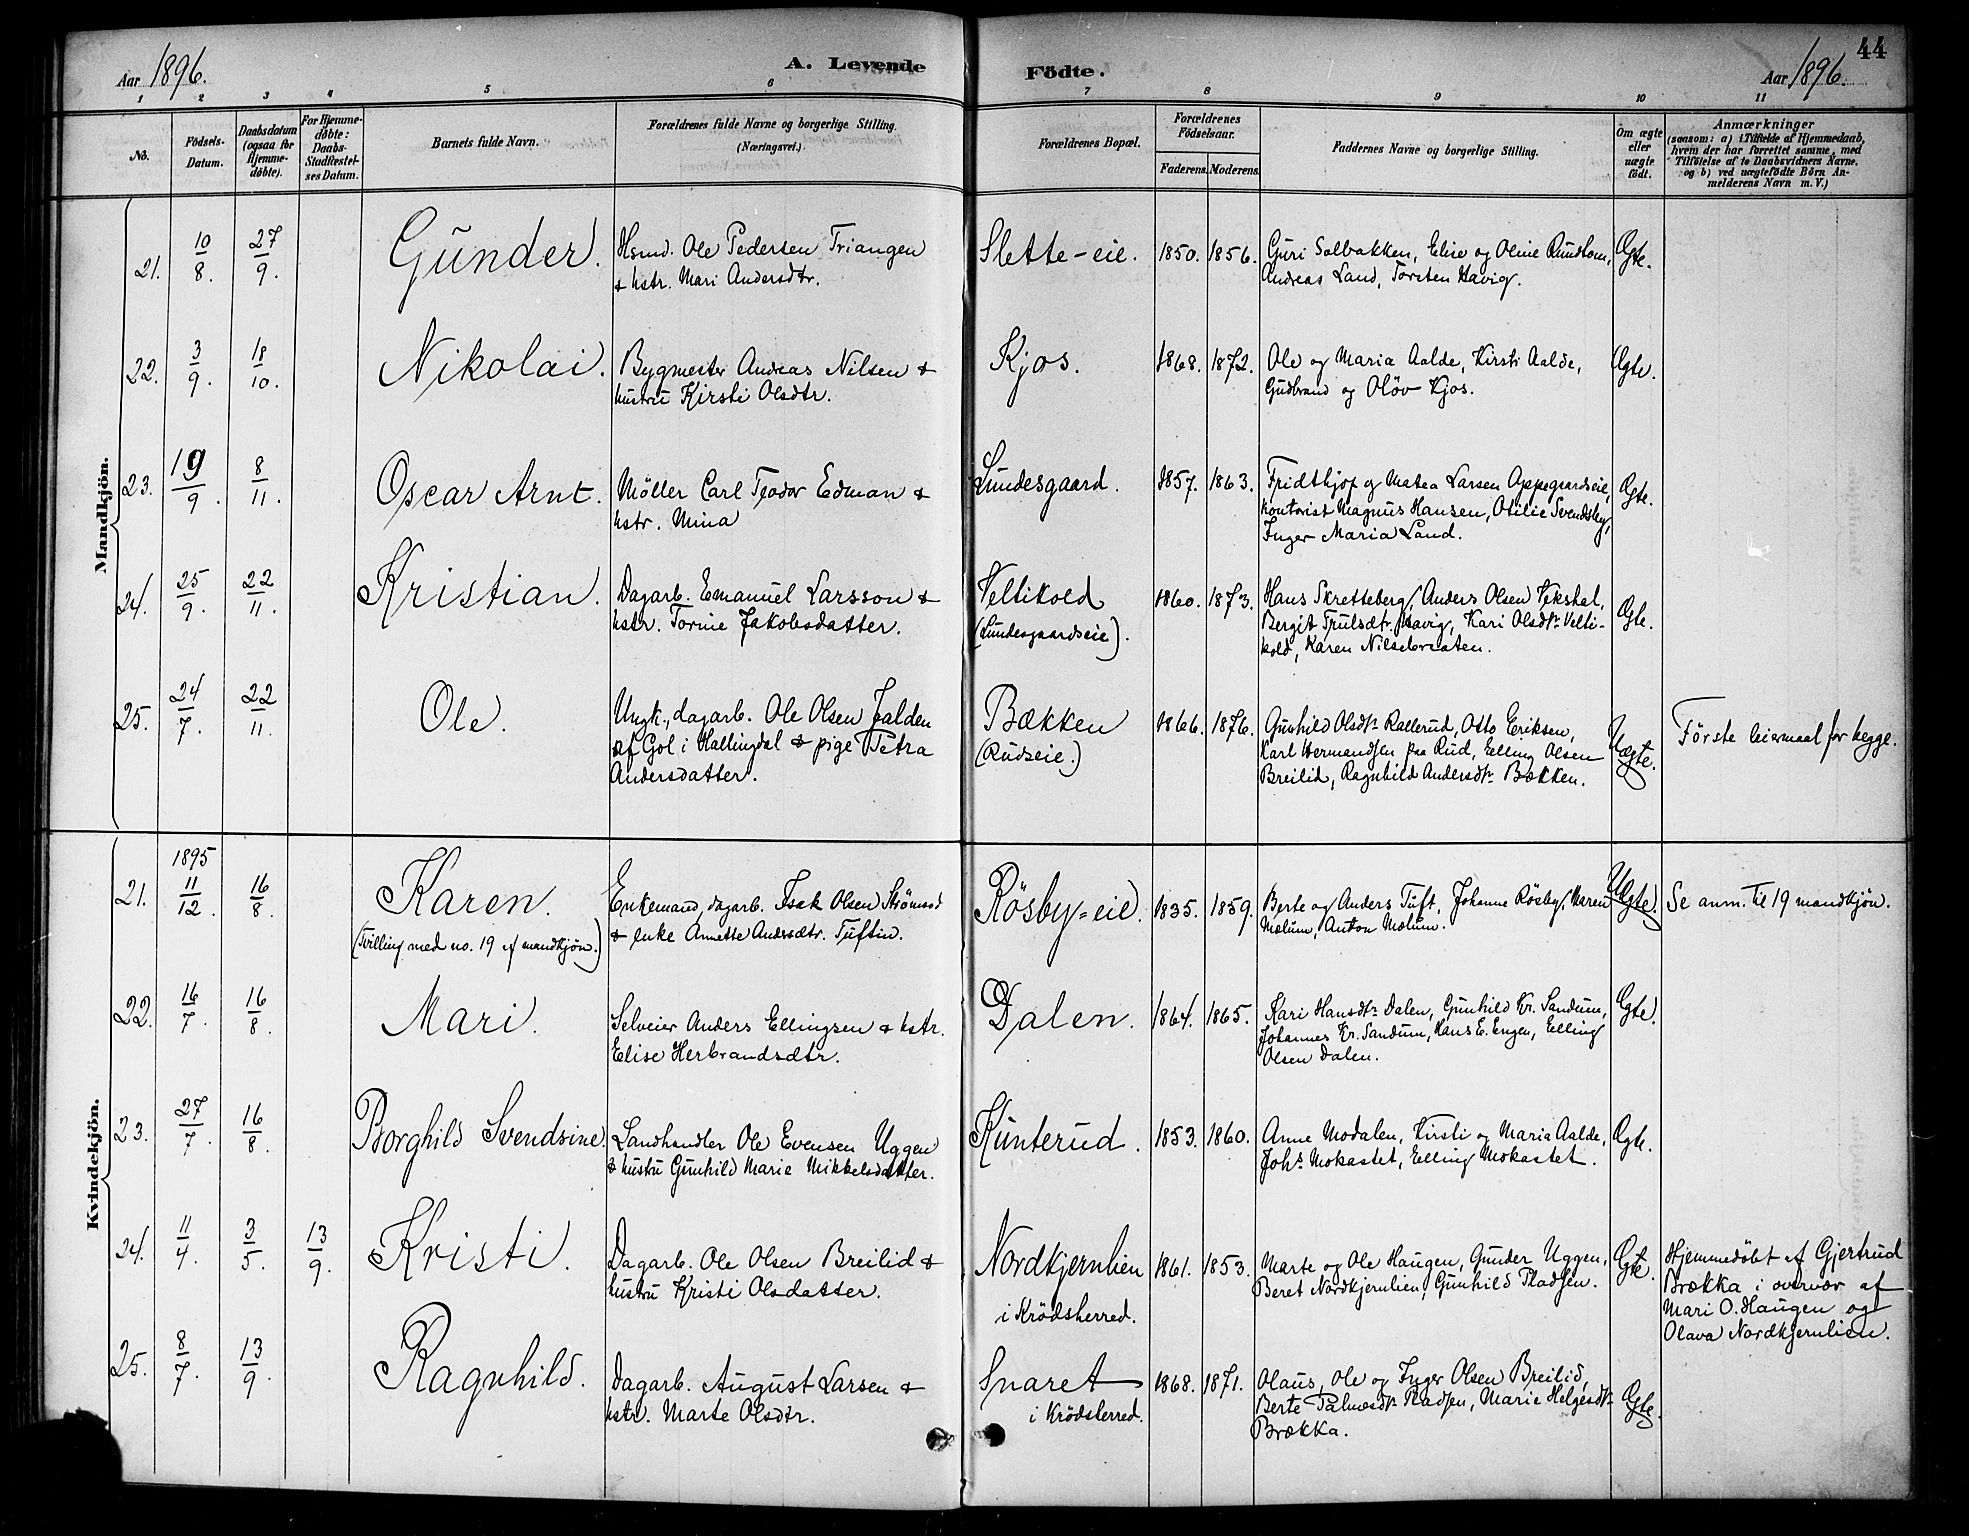 Aar 1896.
A. Levende
Födte.
Aar 1896.
44
1 2 3 4 5 6 7 8 9 10 11
No.
Födsels-
Datum.
Daabsdatum
(ogsaa for
Hjemme-
döbte).
For Hjemme-
döbte:
Daabs-
Stadfæstel-
ses Datum.
Barnets fulde Navn.
Forældrenes fulde Navne og borgerlige Stilling.
(Næringsvei.)
Forældrenes Bopæl.
Forældrenes
Födselsaar.
Faderens. Moderens.
Faddernes Navne og borgerlige Stilling.
Om ægte
eller
uægte
födt.
Anmærkninger
(saasom: a) i Tilfælde af Hjemmedaab,
hvem der har forrettet samme, med
Tilföielse af to Daabsvidners Navne,
og b) ved uægtefödte Börn An-
melderens Navn m. V.)
Mandkjön.
21. 10/8. 27/9. Gunder.
Hsmd. Ole Pedersen Triangen
& hstr. Mari Andersdtr.
Slette-eie. 1850. 1856.
Guri Solbakken, Elise og Oline Rundtom,
Andreas Land, Torsten Havig.
Ægte.
22. 3/9. 18/10. Nikolai.
Bygmester Andreas Nilsen &
hustru Kirsti Olsdtr.
Kjos. 1868. 1872.
Ole og Maria Aalde, Kirsti Aalde,
Gudbrand og Olöv Kjos.
Ægte.
23. 19/9. 8/11. Oscar Arnt.
Möller Carl Teodor Edman &
hstr. Mina
Lundesgaard. 1857. 1863.
Fridthjof og Matea Larsen Oppegaardseie,
kontorist Magnus Hansen, Otilie Svendsby,
Inger Maria Land.
Ægte.
24. 25/9. 22/11. Kristian.
Dagarb. Emanuel Larsson &
hstr. Torine Jakobsdatter.
Veltikold
(Lundesgaardseie). 1860. 1873.
Hans Skretteberg, Anders Olsen Vekshal,
Bergit Trulsdtr. Havig, Kari Olsdtr. Velti-
kold, Karen Nilsebraaten.
Ægte.
25. 24/7. 22/11. Ole.
Ungk., dagarb. Ole Olsen Jalden
af Gol i Hallingdal & pige Petra
Andersdatter.
Bækken
(Rudseie.) 1866. 1876.
Gunhild Olsdtr. Rallerud, Otto Eriksen,
Karl Hermandsen paa Rud, Elling Olsen
Breilid, Ragnhild Andersdtr. Bækken.
Uægte.
Förste leiermaal for begge.
Kvindekjön.
21. 1895 11/12. 16/8. Karen.
(Tvilling med no. 19 af mandkjön.)
Enkemand, dagarb. Isak Olsen Strömsod
& enke Annette Andersdtr. Tuftin.
Rösby-eie. 1835. 1859.
Berte og Anders Tuft, Johanne Rösby, Maren
Mælum, Anton Mælum.
Uægte.
Se anm. til 19 mandkjön.
22. 16/7. 16/8. Mari.
Selveier Anders Ellingsen & hstr.
Elise Herbrandsdtr.
Dalen. 1864. 1865.
Kari Hansdtr. Dalen, Gunhild Kr. Sandum,
Johannes Kr. Sandum, Hans E. Engen, Elling
Olsen Dalen.
Ægte.
23. 27/7. 16/8. Borghild Svendsine.
Landhandler Ole Evensen Uggen
& hustru Gunhild Marie Mikkelsdatter.
Kunterud. 1853. 1860.
Anne Modalen, Kirsti og Maria Aalde,
Johs. Mokastet, Elling Mokastet.
Ægte.
24. 11/4. 3/5. 13/9. Kristi.
Dagarb. Ole Olsen Breilid &
hustru Kristi Olsdatter.
Nordkjernlien
i Krödsherred. 1861. 1853.
Marte og Ole Haugen, Gunder Uggen,
Beret Nordkjernlien, Gunhild Pladsen.
Ægte.
Hjemmedöbt af Gjertrud
Brækka i overvær af
Mari O. Haugen og
Olava Nordkjernlien.
25. 8/7. 13/9. Ragnhild.
Dagarb. August Larsen &
hstr. Marte Olsdtr.
Snaret
i Krödsherred. 1868. 1871.
Olaus, Ole og Inger Olsen Breilid,
Berte Palmesdtr. Pladsen, Marie Helgesdtr.
Brækka.
Ægte.